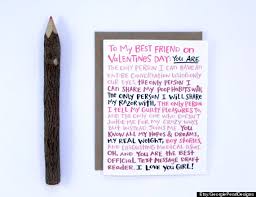 TO MY BEST FRIEND on
VALENTINES DAY: YOU ARE
THE ONLY PERSON I CAN HAVE AN
ENTIRE CONVERSATION USING ONLY
OUR EYES. THE ONLY PERSON I
CAN SHARE MY POOP HABITS WITH.
THE ONLY PERSON I WILL SHARE
MY RAZOR WITH, THE ONLY PERSON
I TELL MY GUILTY PLEASURES TO,
AND THE ONLY ONE WHO DOESN'T
JUDGE ME FOR MY CRAZY WAYS
BUT INSTEAD JOINS ME. YOU
KNOW ALL MY HOPES & DREAMS,
MY REAL WEIGHT, BOY STORIES,
AND DISGUSTING MEDICAL ISSUES
AND YOU ARE THE BEST
OFFICIAL TEXT MESSAGE DRAFT
READER. I LOVE YOU GIRL!
Etsy/GeorgiePearlDesigns